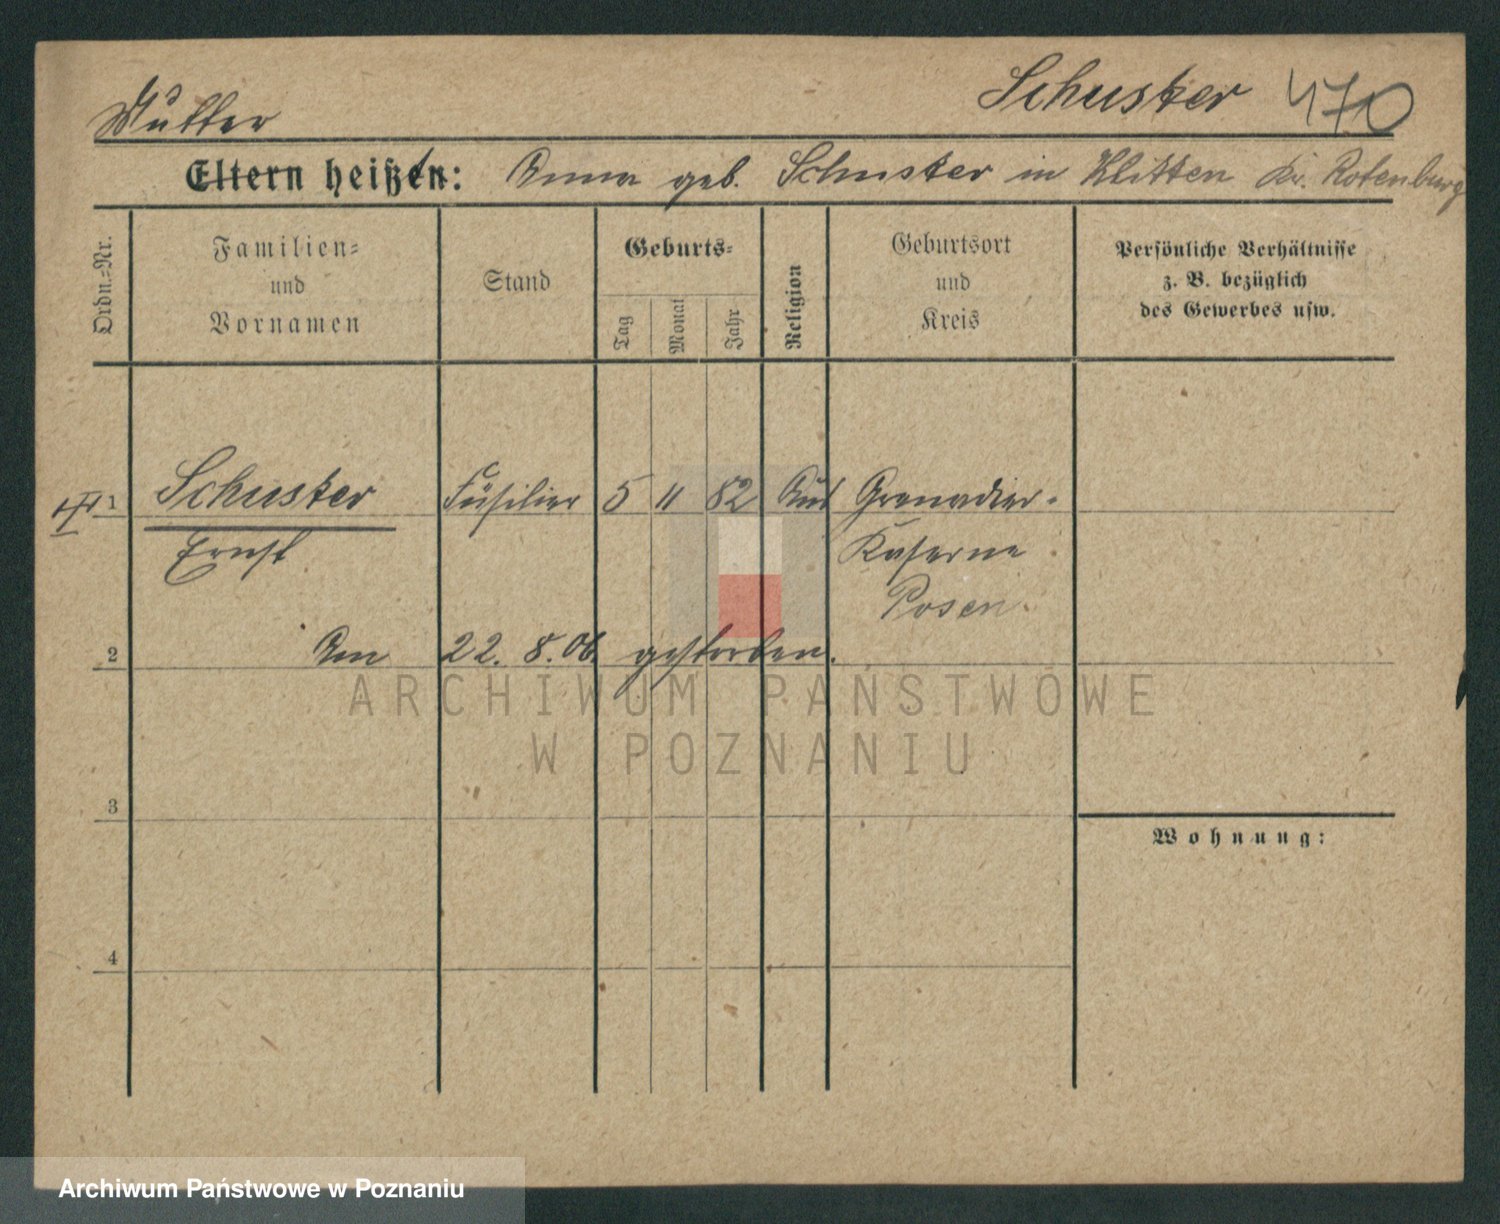 Schuster 470
Mutter
Eltern heißen: Anna geb. Schuster in Klitten Kr. Rotenburg
Ordn.-Nr.
Familien-
und
Vornamen
Stand
Geburts-
Tag
Monat
Jahr
Religion
Geburtsort
und
Kreis
Persönliche Verhältnisse
z. B. bezüglich
des Gewerbes usw.
1 Schuster Füsilier 5 11 82 Grenadier-
Ernst Kaserne
Posen.
2 Am 22. 8. 06 gestorben.
ARCHIWUM PAŃSTWOWE
W POZNANIU
3
Wohnung:
4
Archiwum Państwowe w Poznaniu